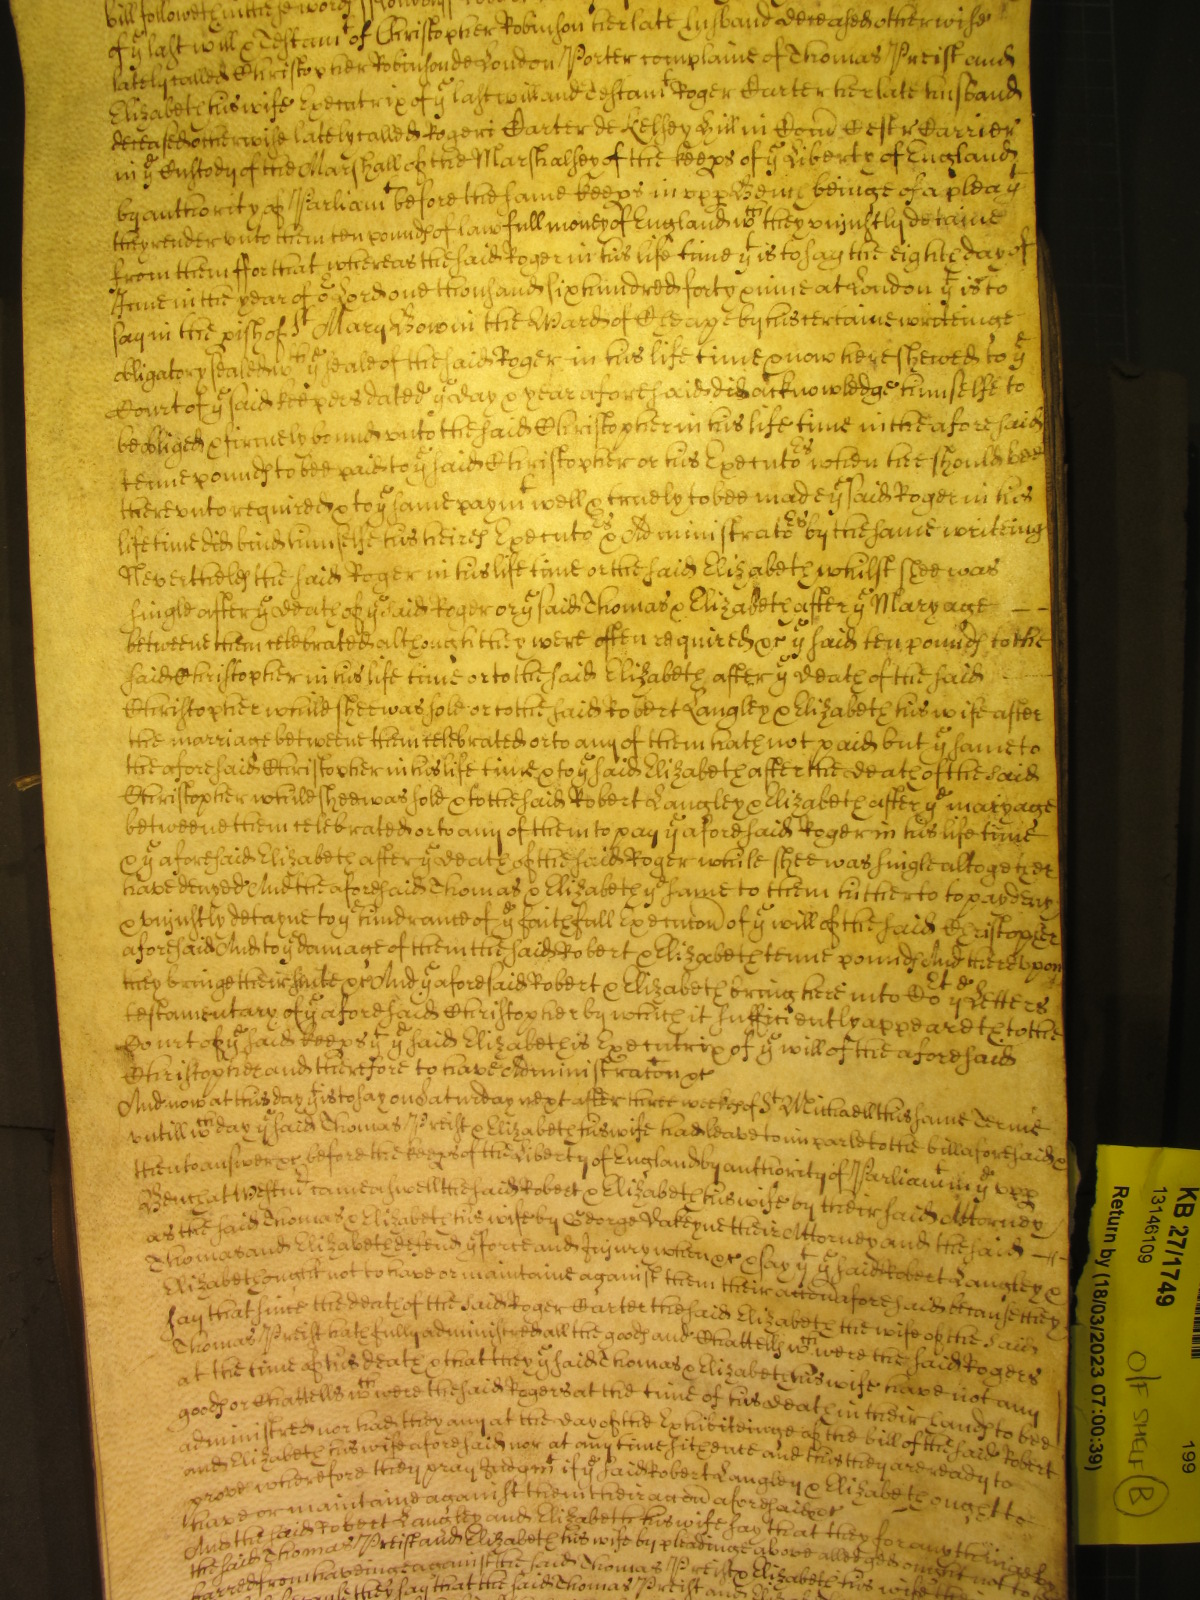 bill followeth in these words
of yᵉ last will & Testamᵗ of Christopher Robinson her late husband deceased otherwise
lately called Christopher Robinson de London Porter complaine of Thomas Preist and
Elizabeth his wife Executrix of yᵉ last will and Testamᵗ Roger Carter her late husband
deceased otherwise lately called Rogeri Carter de Kelsey Hill in Com Cestr Carrier
in yᵉ Custody of the Marshall of the Marshalsey of the keeps of yᵉ Liberty of England
by authority of Parliamᵗ before the same keeps in vpp Bench beinge of a plea yᵗ
they render unto them ten pounds of lawfull money of England wᶜʰ they uniustly detaine
from them ffor that whereas the said Roger in his life time yᵗ is to say the eight day of
June in the year of oʳ Lord one thousand six hundred forty & nine at London yᵗ is to
say in the pish of Sᵗ Mary Bow in the Ward of Cheape by his certaine writeinge
obligatory sealed wᵗʰ yᵉ seale of the said Roger in his life time & now here shewed to yᵉ
Court of yᵉ said keepers dated yᵉ day & year aforesaid did acknowledge himselfe to
be obliged & firmely bound unto the said Christopher in his life time in the aforesaid
tenne pounds to bee paid to yᵉ said Christopher or his Executoʳˢ when hee should bee
thereunto required & to yᵉ same paymᵗ well & truely to bee made yᵉ said Roger in his
life time did bind himselfe his heires Executoʳˢ & Administratoʳˢ by the same writeing
Neverthelesse the said Roger in his life time or the said Elizabeth whilst shee was
single after yᵉ death of yᵉ said Roger or yᵉ said Thomas & Elizabeth after yᵉ Maryage
betweene them celebrated although they were often required &c yᵉ said ten pounds to the
said Christopher in his life time or to the said Elizabeth after yᵉ death of the said
Christopher while shee was sole or to the said Robert Langley & Elizabeth his wife after
the marriage betweene them celebrated or to any of them hath not paid but yᵉ same to
the aforesaid Christopher in his life time & to yᵉ said Elizabeth after the death of the said
Christopher while shee was sole & to the said Robert Langley & Elizabeth after yᵉ maryage
betweene them celebrated or to any of them to pay yᵉ aforesaid Roger in his life time
& yᵉ aforesaid Elizabeth after yᵉ death of the said Roger while shee was single altogether
have denyed And the aforesaid Thomas & Elizabeth yᵉ same to them hitherto to pay deny
& uniustly detayne to yᵉ hindrance of yᵉ faithfull Execucon of yᵉ will of the said Christopher
aforesaid And to yᵉ damage of them the said Robert & Elizabeth tenne pounds And thereupon
they bringe their suite &c And yᵉ aforesaid Robert & Elizabeth bring here into Coʳᵗ yᵉ Letters
testamentary of yᵉ aforesaid Christopher by which it sufficiently appeareth to the
Court of yᵉ said keeps yᵗ yᵉ said Elizabeth is Executrix of yᵉ will of the aforesaid
Christopher and therefore to have Administracon &c
And now at this day yᵗ is to say on Saturday next after three weekes of Sᵗ Michaell this same Terme
untill wᶜʰ day yᵉ said Thomas Preist & Elizabeth his wife had leave to imparle to the bill aforesaid &
then to answer &c before the keeps of the Liberty of England by authority of Parliamᵗ in yᵉ vpp
Bench at Westmʳ came aswell the said Robert & Elizabeth his wife by their said Attorney
as the said Thomas & Elizabeth his wife by George Dakeyne their Attorney and the said
Thomas and Elizabeth defend yᵉ force and Injury when &c & say yᵗ yᵉ said Robert Langley &
Elizabeth ought not to have or maintaine against them their accon aforesaid because they
say that since the death of the said Roger Carter the said Elizabeth the wife of the said
Thomas Preist hath fully administred all the goods and Chattells wᶜʰ were the said Rogers
at the time of his death & that they yᵉ said Thomas & Elizabeth his wife have not any
goods or Chattells wᶜʰ were the said Rogers at the time of his death in their hands to bee
administred nor had they any at the day of the Exhibiteinge of the bill of the said Robert
and Elizabeth his wife aforesaid nor at any time sithence and this they are ready to
prove wherefore they pray Judgmᵗ if yᵉ said Robert Langley & Elizabeth ought to
have or maintaine against them their accon aforesaid &c
And the said Robert Langley and Elizabeth his wife say that they for any thing
the said Thomas Preist and Elizabeth his wife by pleadinge above alledged ought not to
barred from haveinge against the said Thomas Preist & Elizabeth his wife
because they say that the said Thomas Preist and
KB 27/1749
13146109
199
Return by (18/03/2023 07:00:39)
O/F SHELF B